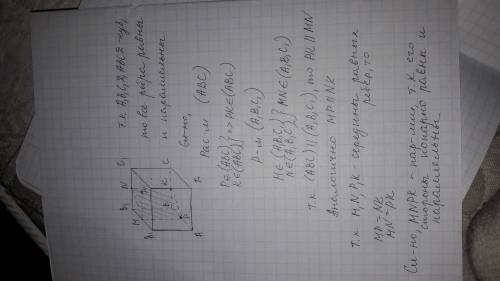 Т.к. A₁B₁C₁D₁ABCD - куб,
то все ребра равны
и параллельны
Сл-но,
Рас-м (ABC)
P∈(ABC)
K∈(ABC) } => PK∈(ABC)
р-м (A₁B₁C₁)
M∈(A₁B₁C₁)
N∈(A₁B₁C₁) } MN∈(A₁B₁C₁)
т.к (ABC) || (A₁B₁C₁), то PK || MN
Аналогично MP || NK
т.к M, N, P, K - середины равных
ребер, то
MP = NK
MN = PK
Сл-но, MNPK - пар-мм, т.к его
стороны попарно равны и
параллельны
M
B₁
N
C₁
D₁
K
C
B
P
D
A